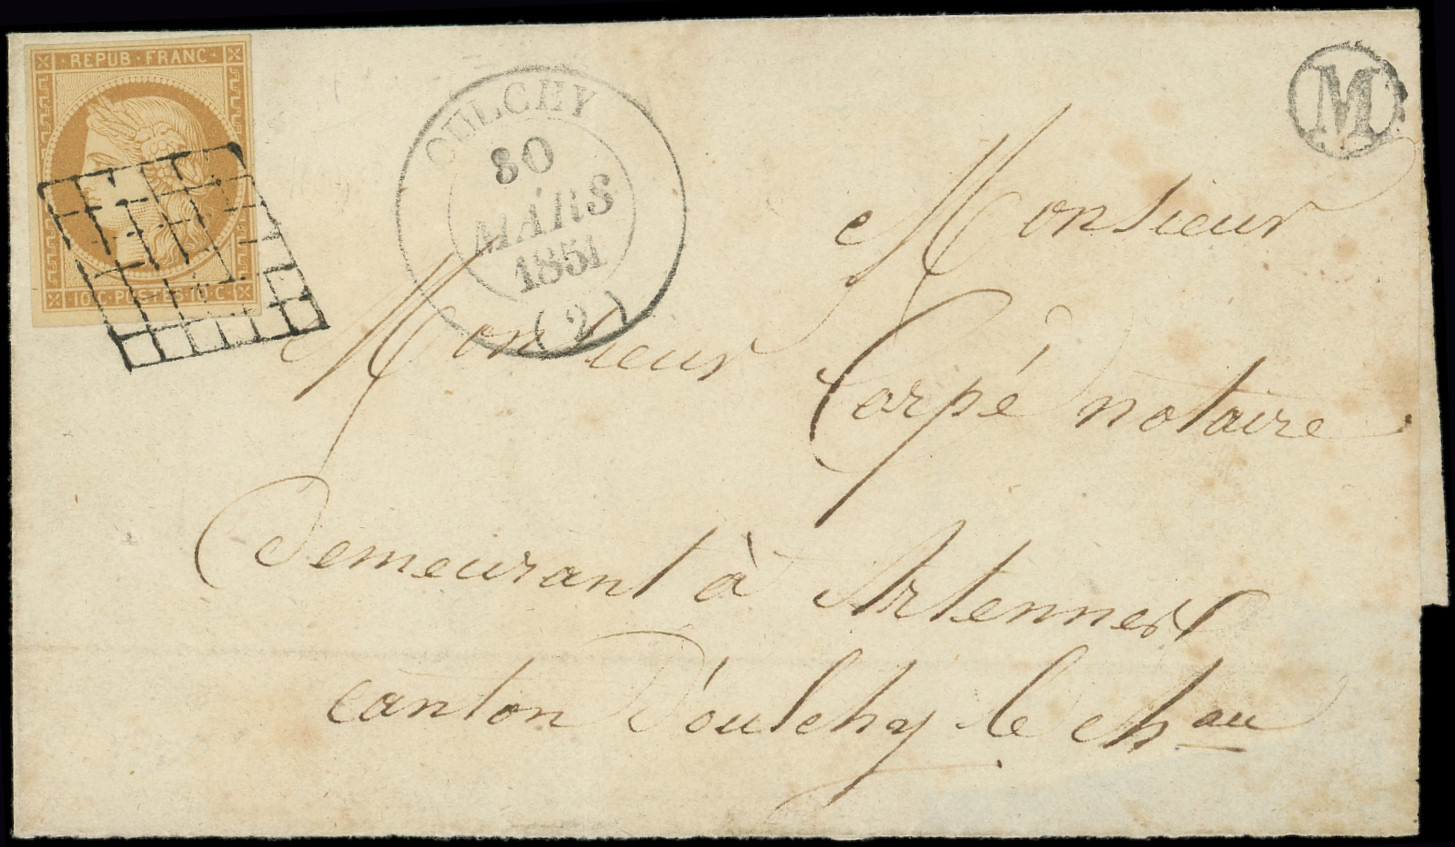 REPUB·FRANC·
10·C·POSTES·10·C·
OULCHY
30
MARS
1851
(2)
M
Monsieur
Monsieur Carpé notaire
Demeurant à Artennes
canton D'oulchy le chau